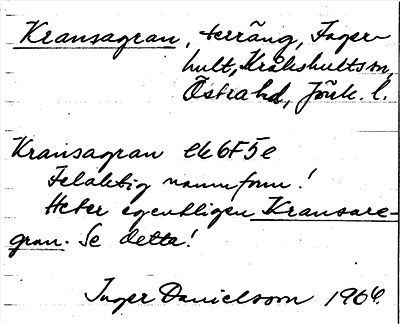 Kransagran, terräng, Fager-
hult, Kråkshults sn,
Östra hd, Jönk. l.
Kransagran ek 6F5e
Felaktig namnform!
Heter egentligen Kransare-
gran. Se detta!
Inger Danielsson 1969.